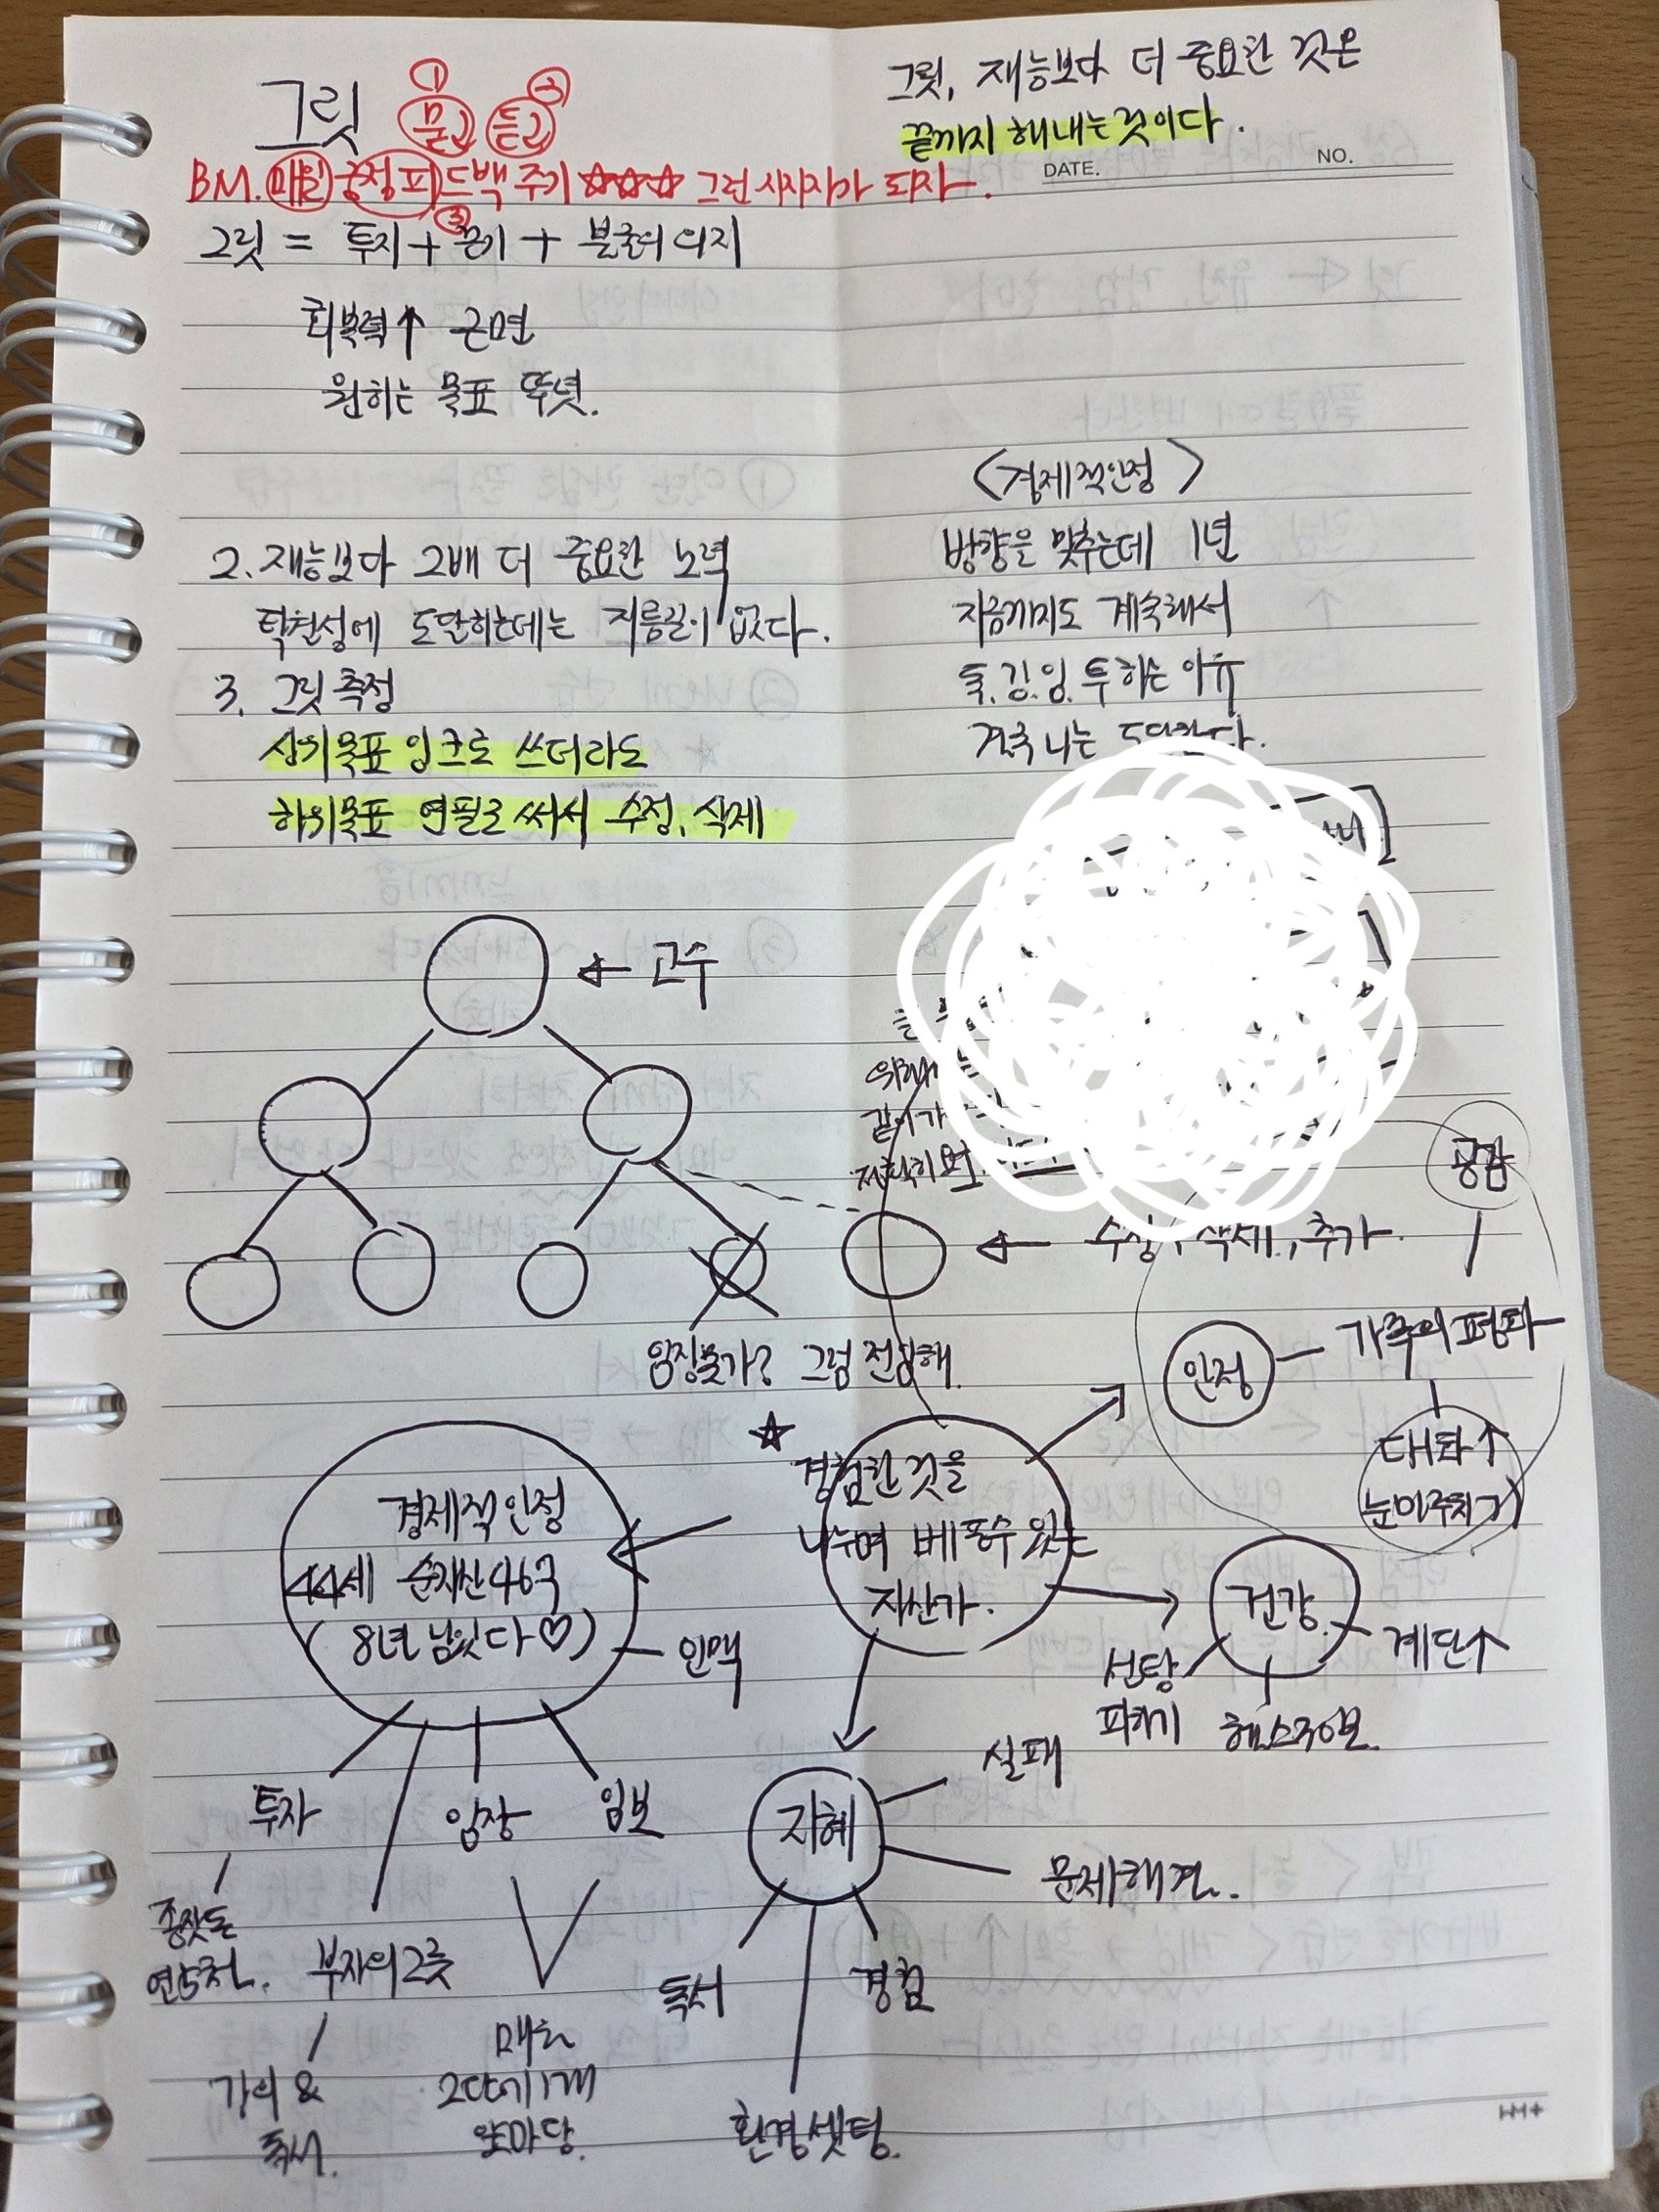 그릿, 재능보다 더 중요한 것은
끝까지 해내는 것이다.
DATE. NO.
그릿 ① 묻고 듣고 ②
BM. 매일 긍정 피드백 주기 ☆☆☆ 그런 시지자가 되자.
③
그릿 = 투지 + 끈기 + 불굴의 의지
회복력↑ 근면
원하는 목표 뚜렷.
2. 재능보다 2배 더 중요한 노력
탁월성에 도달하는데는 지름길이 없다.
3. 그릿 측정
상위목표 잉크로 쓰더라도
하위목표 연필로 써서 수정, 삭제
<경제적안정>
방향을 맞추는데 1년
지금까지도 계속해서
독.강.임.투 하는 이유
결국 나는
← 고수
← 수정, 삭제, 추가.
임장불가? 그럼 전담해.
공감
안정 - 가족의 평화
대화↑
눈마주치기
☆
경험한 것을
나누며 베풀수 있는
자산가.
경제적안정
44세 순자산46억
(8년 남았다♡)
인맥
투자
임장
임보
종잣돈
연5천.
부자의그릇
강의 &
독서.
매년
2달에1개
앞마당.
건강
계단↑
선당
피하기
헬스주3번.
지혜
실패
문제해결.
독서
경험
환경셋팅.